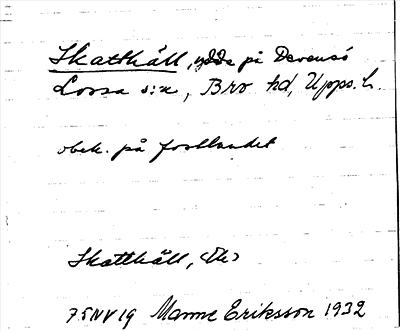 Skatthäll, udde på Dævensö
Lossa s:n, Bro hd, Upps. l.
obek. på fastlandet
Skatthäll, (Th)
75NV19 Manne Eriksson 1932